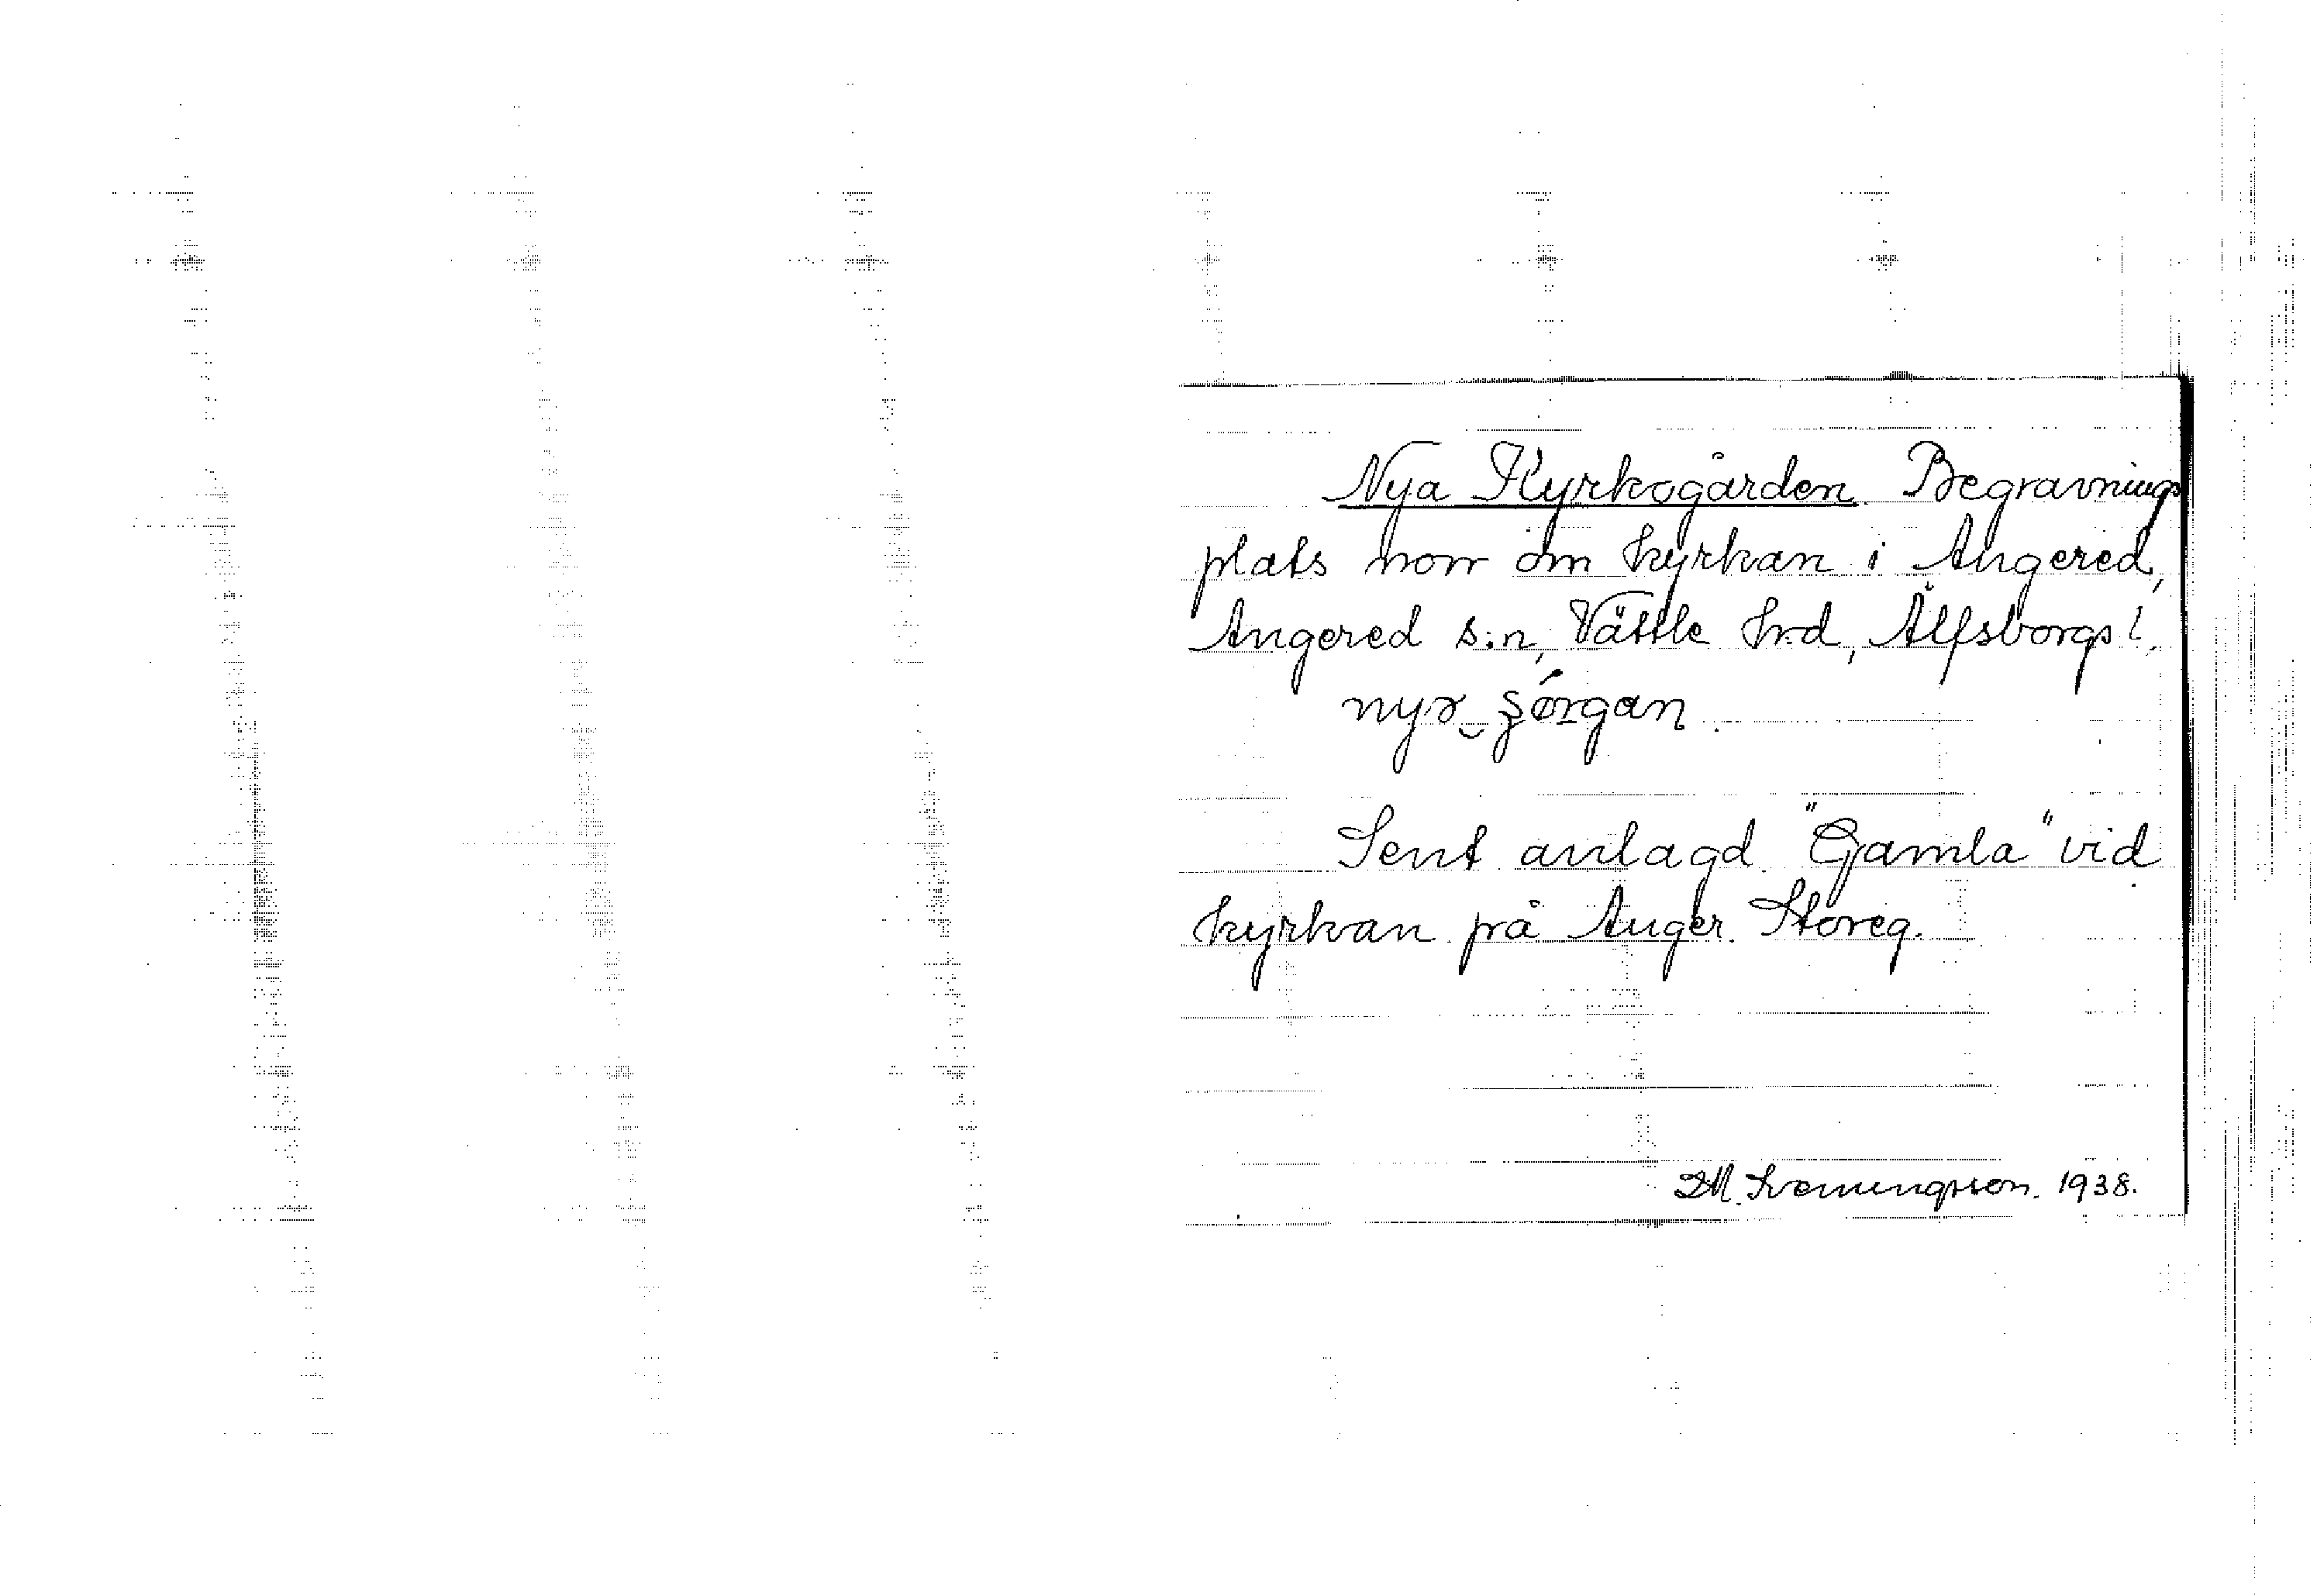 Nya Kyrkogården. Begravnings
plats norr om kyrkan i Angered,
Angered s:n, Vättle hrd, Älfsborgs l.
Sent anlagd. "Gamla" vid
kyrkan på Anger. Storeg.
1938.